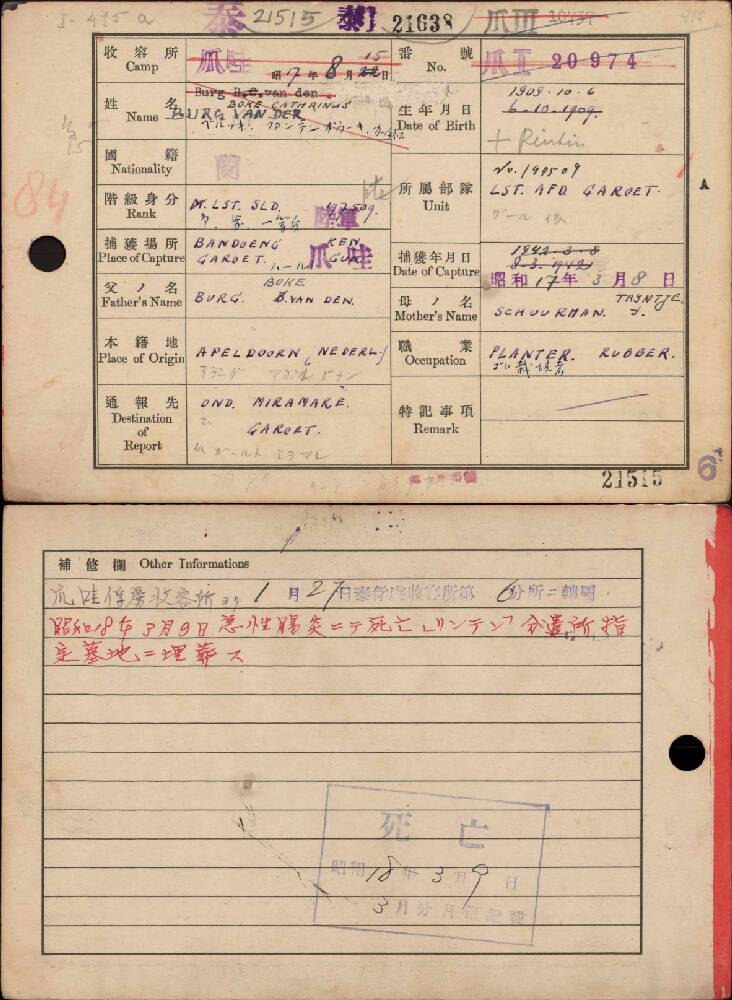 I-415 a
泰 21515 泰 I 21638 爪 III 10437
收容所 Camp
爪哇 昭17年8月15 22日
番號 No.
爪 II 20974
姓名 Name
Burg B.C.van den
BOKE CATHRINUS
BURG VAN DER
生年月日 Date of Birth
1909.10.6
6-10-1909.
+ Rintin
國籍 Nationality
蘭
所属部隊 Unit
No. 190509
LST. AFD. GAROET.
階級身分 Rank
Mt. LST. SLD.
陸軍
捕獲場所 Place of Capture
BANDOENG
GAROET.
爪哇
捕獲年月日 Date of Capture
1942-3-8
8-3-1942
昭和17年3月8日
父ノ名 Father's Name
BOKE
BURG. B.VAN DEN.
母ノ名 Mother's Name
TRYNTJE
SCHUURMAN.
本籍地 Place of Origin
APELDOORN (NEDERL.)
職業 Occupation
PLANTER. RUBBER.
通報先 Destination of Report
OND. MIRAMARE.
GAROET.
特記事項 Remark
84
A
21515
6
補修欄 Other Informations
爪哇俘虜收容所ヨリ1月27日泰俘虜收容所第6分所ニ轉屬
昭和18年3月9日急性腸炎ニテ死亡「リンテン」分遣所指
定墓地ニ埋葬ス
死亡
昭和18年3月9日
3月分月報記載